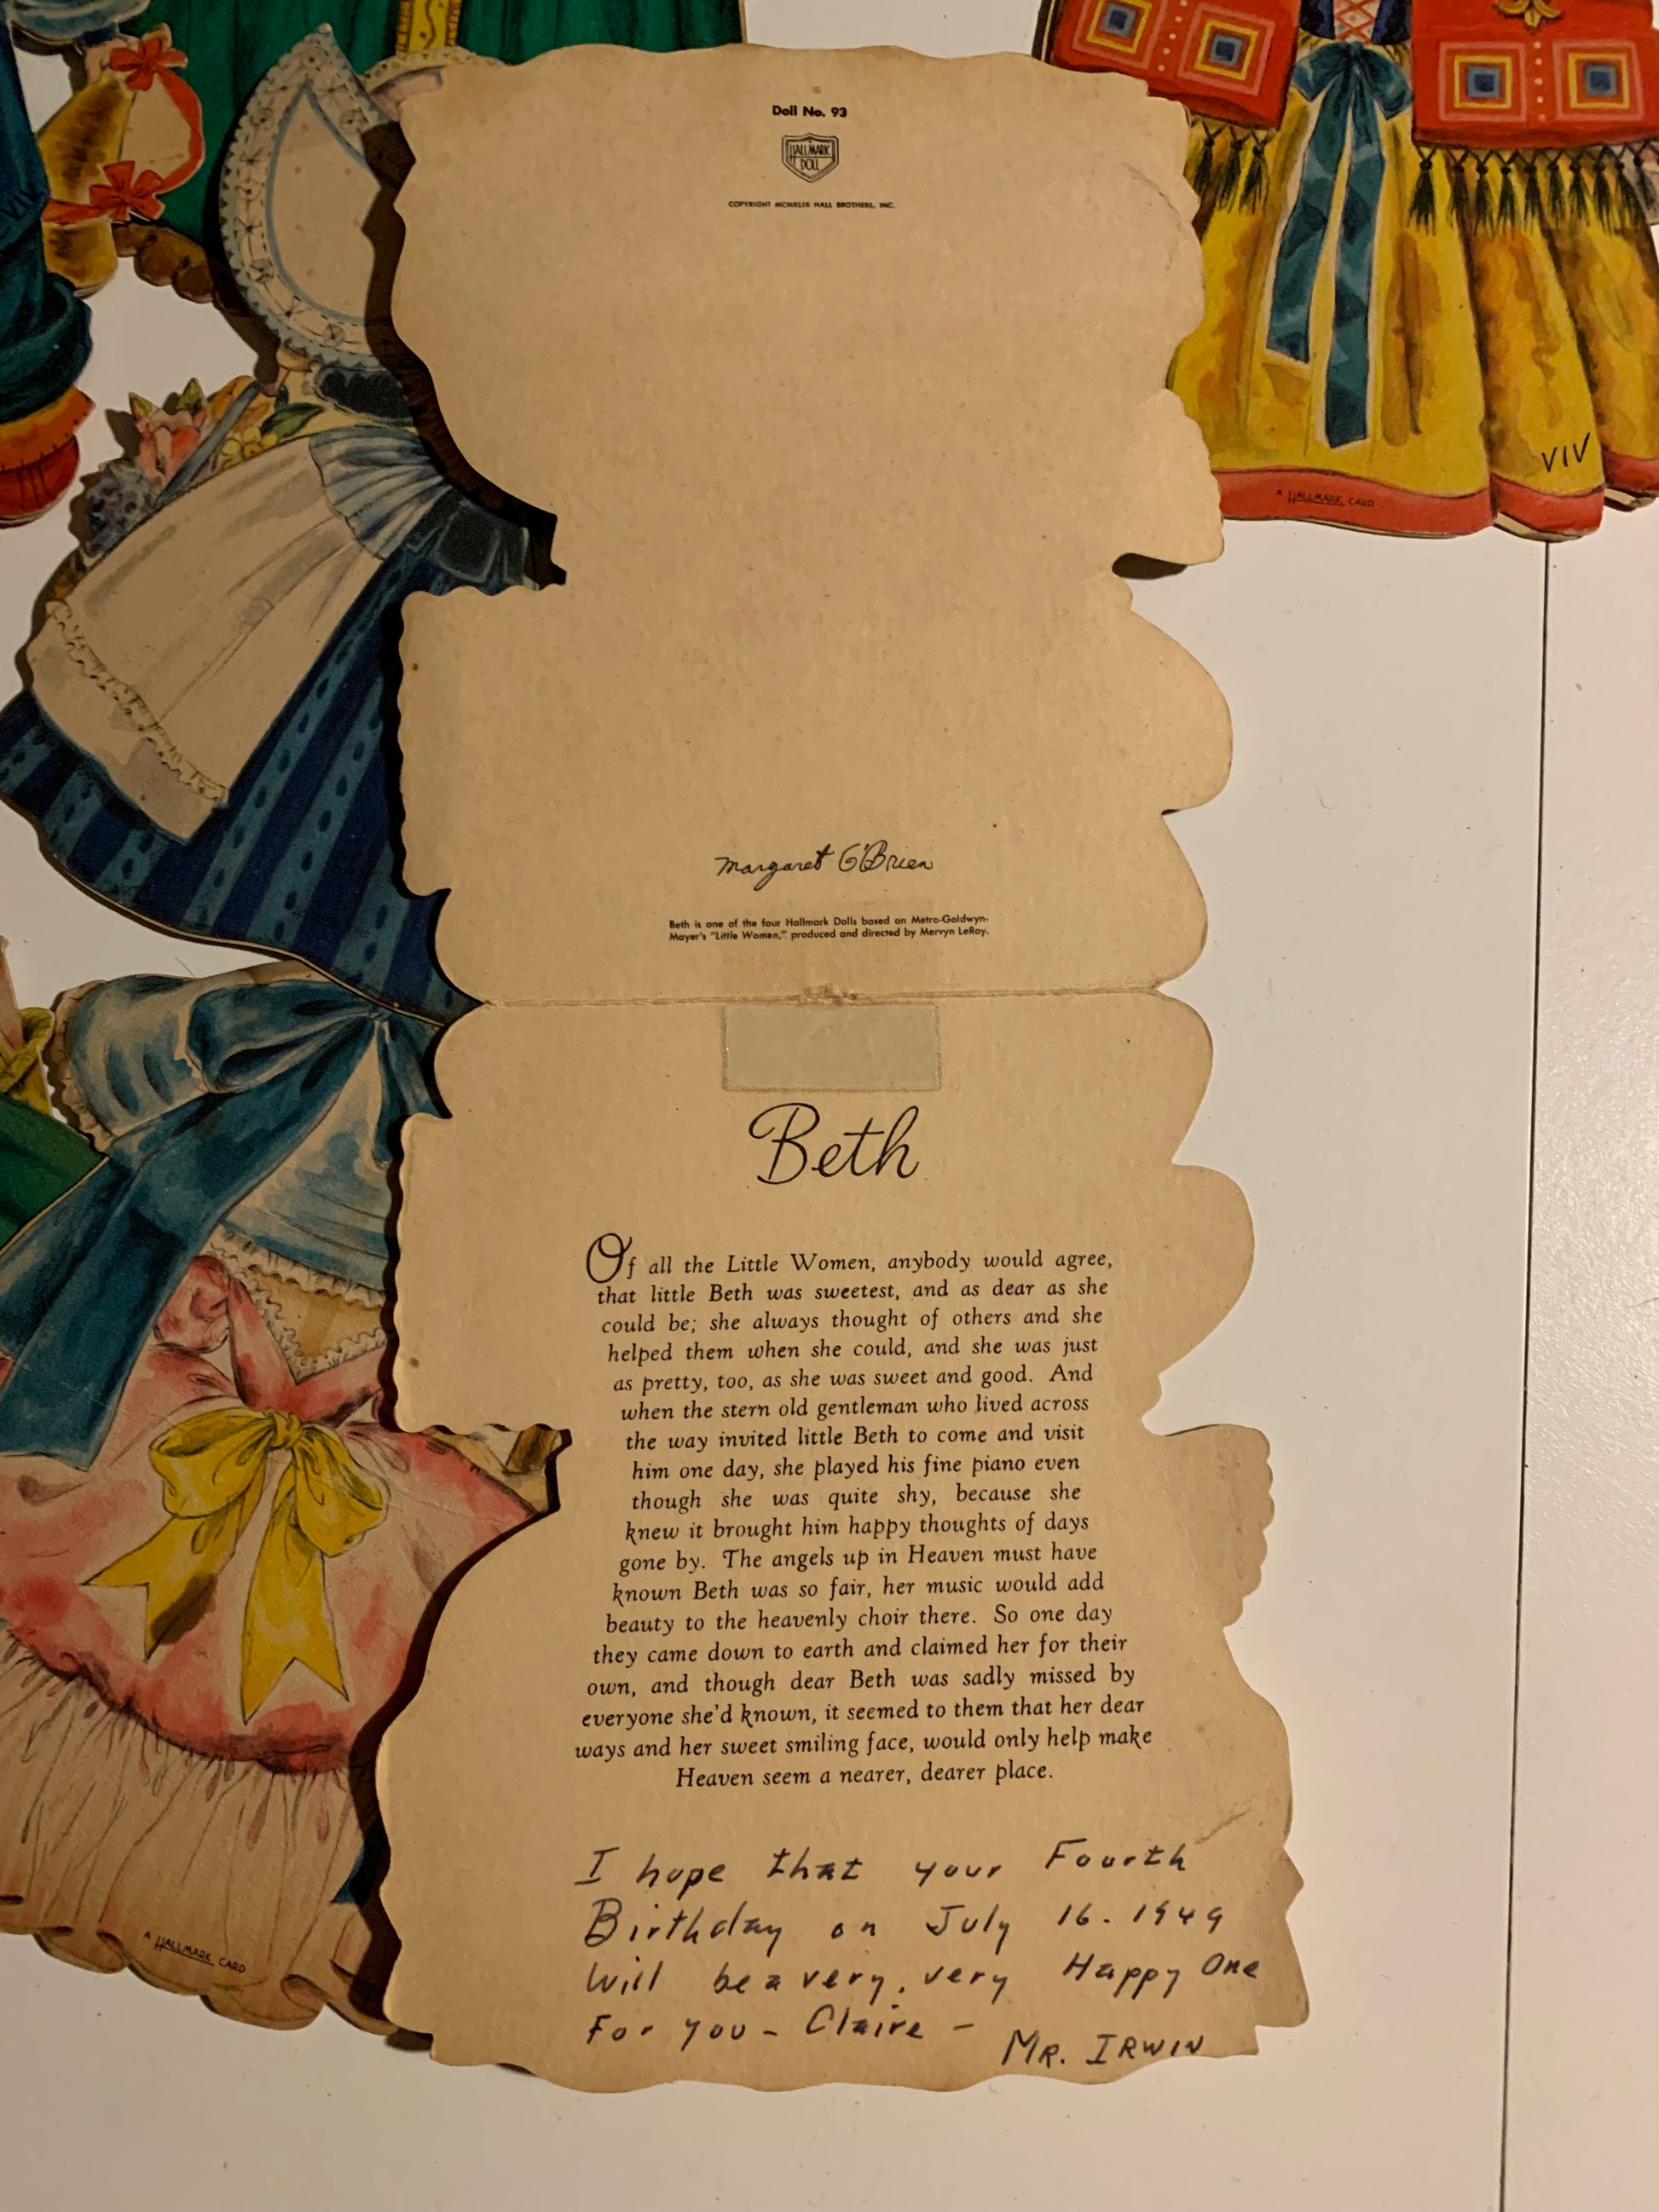 Doll No. 93
HALLMARK
DOLL
COPYRIGHT MCMXLIX HALL BROTHERS, INC.
VIV
A HALLMARK CARD
Margaret O'Brien
Beth is one of the four Hallmark Dolls based on Metro-Goldwyn-
Mayer's "Little Women," produced and directed by Mervyn LeRoy.
Beth
Of all the Little Women, anybody would agree,
that little Beth was sweetest, and as dear as she
could be; she always thought of others and she
helped them when she could, and she was just
as pretty, too, as she was sweet and good. And
when the stern old gentleman who lived across
the way invited little Beth to come and visit
him one day, she played his fine piano even
though she was quite shy, because she
knew it brought him happy thoughts of days
gone by. The angels up in Heaven must have
known Beth was so fair, her music would add
beauty to the heavenly choir there. So one day
they came down to earth and claimed her for their
own, and though dear Beth was sadly missed by
everyone she'd known, it seemed to them that her dear
ways and her sweet smiling face, would only help make
Heaven seem a nearer, dearer place.
I hope that your Fourth
Birthday on July 16. 1949
Will be a very, very Happy One
For you - Claire -
MR. IRWIN
A HALLMARK CARD